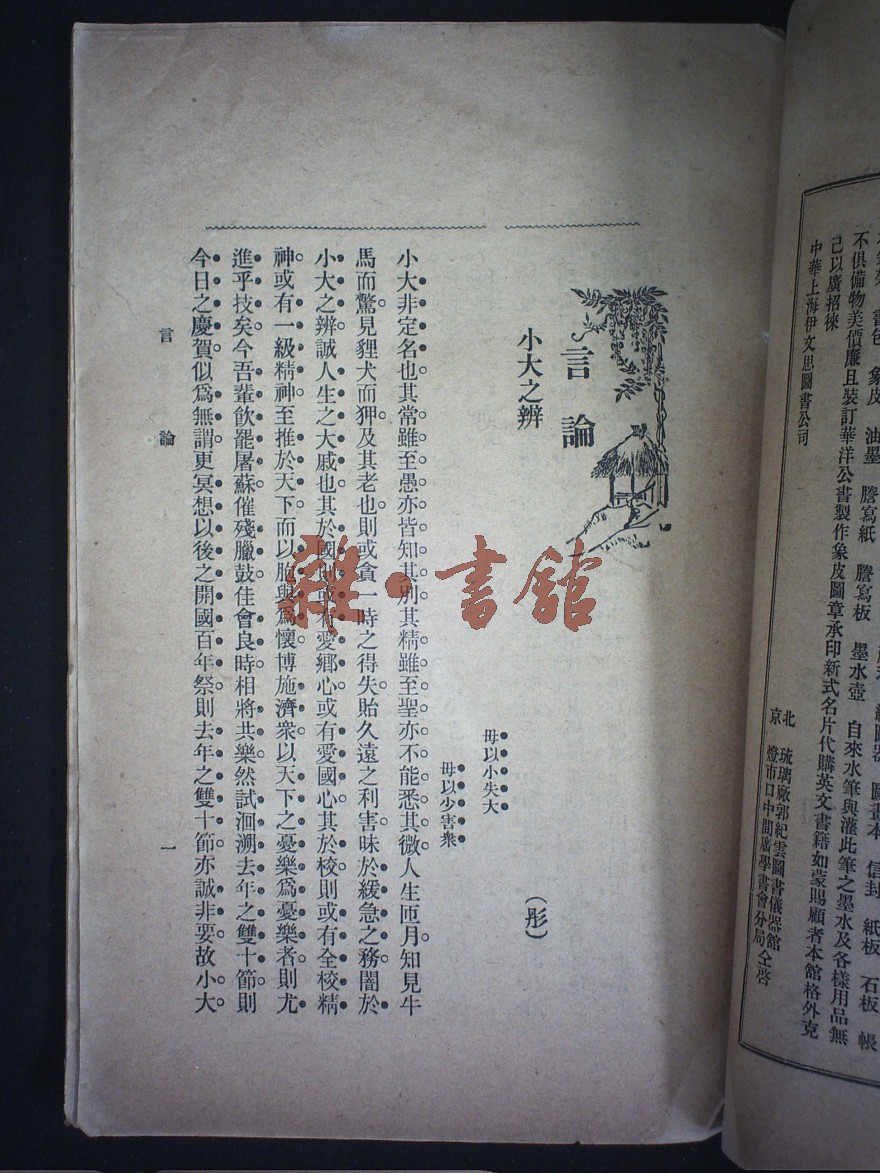 不俱備物美價廉且裝訂華洋公書製作象皮圖章承印新式名片代購英文書籍如蒙賜顧者本館格外克
己以廣招徠
中華上海伊文思圖書公司
北京
琉璃廠郭紀雲圖書儀器館
燈市口中間廣學書會分局仝啓
言論
小大之辨
(彤)
毋以小失大
毋以少害衆
小大非定名也其常雖至愚亦皆知其別其精雖至聖亦不能悉其微人生匝月知見牛
馬而驚見貍犬而狎及其老也則或貪一時之得失貽久遠之利害昧於緩急之務闇於
小大之辨誠人生之大戚也其於國則或有愛鄉心或有愛國心其於校則或有全校精
神或有一級精神至推於天下而以胞與爲懷博施濟衆以天下之憂樂爲憂樂者則尤
進乎技矣今吾輩飲罷屠蘇催殘臘鼓佳會良時相將共樂然試洄溯去年之雙十節則
今日之慶賀似爲無謂更冥想以後之開國百年祭則去年之雙十節亦誠非要故小大
言論
一
雜·書館